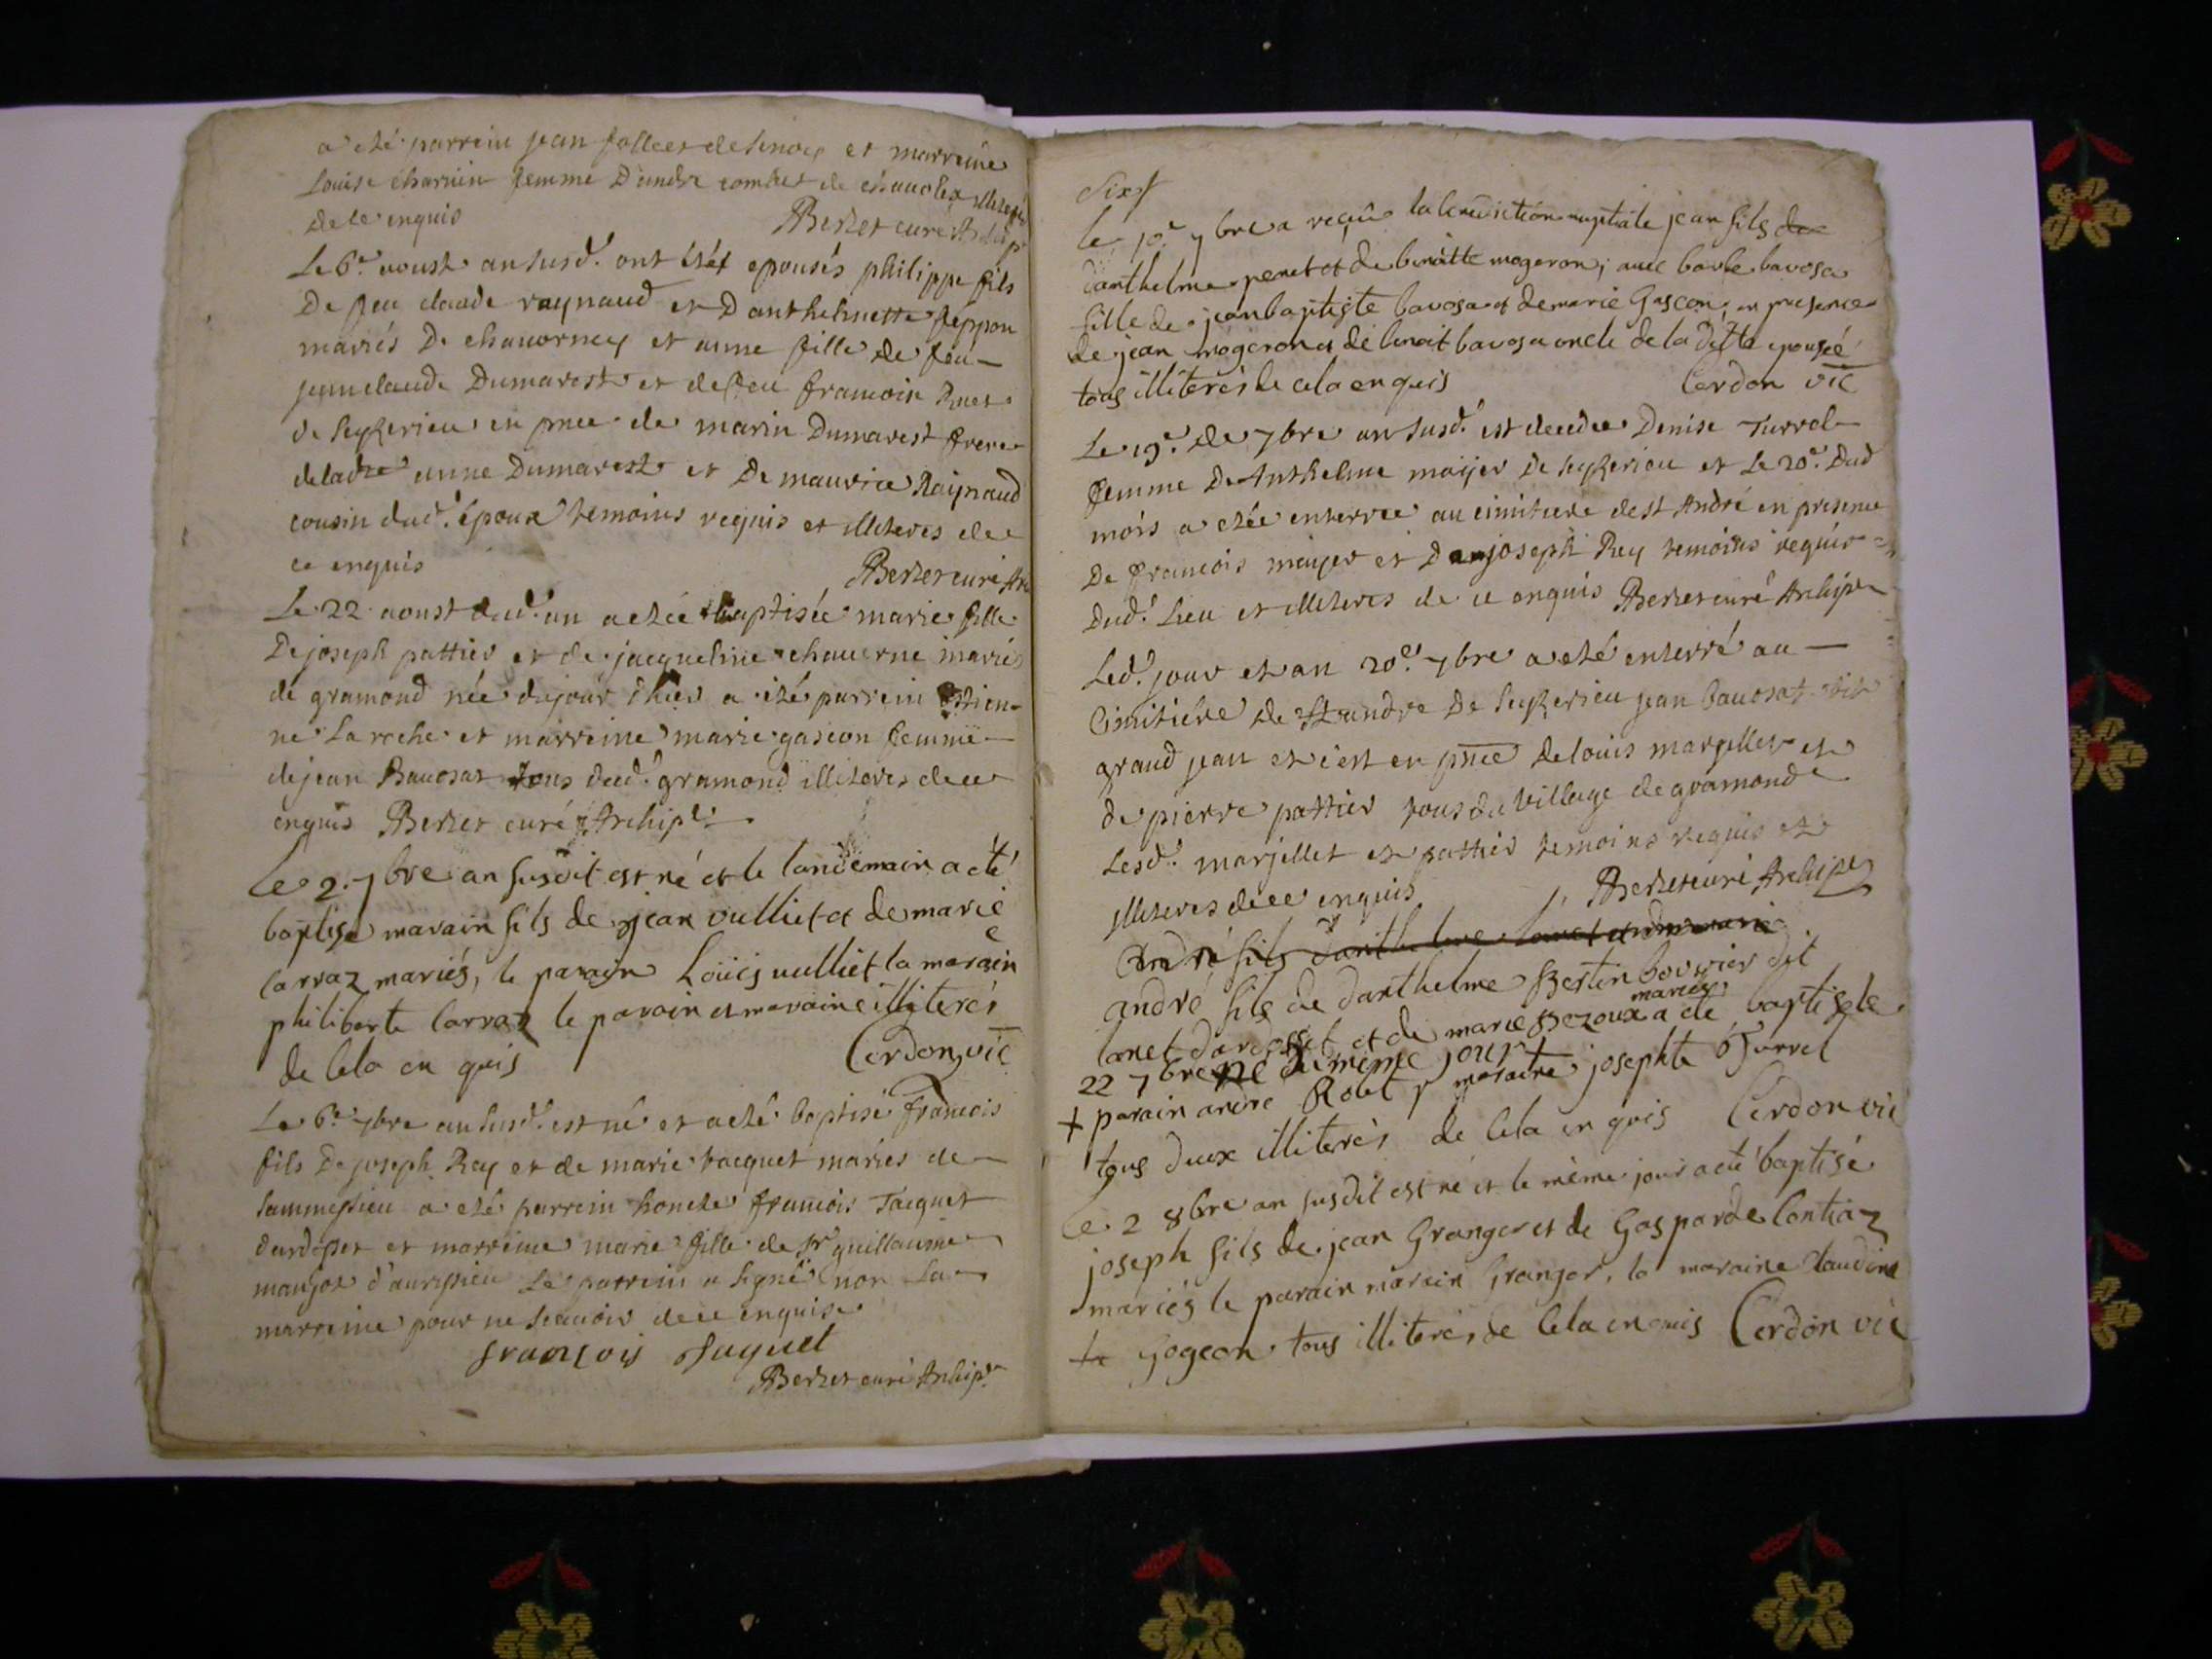 a eté parrein jean follies de senoy et marreine
Louise charvin femme D'andre combet de chavoley illiteres
de ce enquis Berlet curé Archip
Le 6e aoust an susd. ont étés epousés philippe fils
De feu claude raynaud et D'anthelmette jeppon
mariés De chavorney et anne fille de feu
jeanclaude Dumarest et defeu francoise
de seyzerieu en pnce de marin Dumarest frere
deladte anne Dumarest et De maurice Raynaud
cousin dud. époux temoins requis et illiteres de
ce enquis Berlet curé Ar
Le 22 aoust dud. an a etée baptisée marie fille
De joseph pattier et de jacqueline chaverne mariés
de gramond née dujour d'hier a été parrein Ettien-
ne La roche et marreine marie gascon femme
de jean Bavosat tous dud. gramond illiteres de ce
enquis Berlet curé Archip.
Le 2. 7bre an susdit est né et le landemain a eté
baptise marain fils de jean vulliet et de marie
carraz mariés, le parain Loüis vulliet la marain
philiberte carraz le parain et maraine illiterés
de cela en quis Cerdon vic
Le 6e 7bre an susd. est né et a eté baptisé francois
fils De joseph Rey et de marie tacquet mariés de
sammessieu a eté parrein honete francois Tacquet
dardosset et marreine marie fille de sr guillaume
maujot d'auressieu Le parrein a signé non La
marreine pour ne scavoir de ce enquise
françois taquet
Berlet curé Archip.
Six
le 10e 7bre a reçû la benediction nuptiale jean fils de
d'anthelme penet et de benoitte mogeron; avec barbe bavosa
fille de jean baptiste bavosa et de marie Gascon, en presence
de jean mogeron et de benoit bavosa oncle de la ditte epouseé
tous illiterés de cela en quis Cerdon vic
Le 19e de 7bre an susd. est decedee Denise Turrel
femme De Anthelme moijer De seyzerieu et Le 20e Dud
mois a etée enterree au cimitiere de st André en presence
De francois maijer et De joseph Rey temoins requis
Dud. Lieu et illiteres de ce enquis Berlet curé Archip
Led. jour et an 20e 7bre a eté enterré au
Cimitiere de st andre De seyzerieu jean Bavosat dit
grand jean et c'est en pnce de louis marjellet et
de pierre pattier tous du village de gramond
Lesd. marjellet et pattier temoins requis et
illiteres de ce enquis Berlet curé Archip
André fils d'anthelme lanet et de marie
andré fils de d'anthelme Bertin bouvier dit
lanet d'ardosset et de marie Bezoux mariés a eté baptise le
22 7bre né du même jour
+ parain andre Robet maraine josephte Turrel
tous deux illiterés de cela en quis Cerdon vic
Le 2 8bre an susdit est né et le même jour a eté baptisé
joseph fils de jean Granger et de Gasparde Contiaz
mariés le parain marain Granger, la maraine claudine
Gogeon tous illiterés de cela en quis Cerdon vic